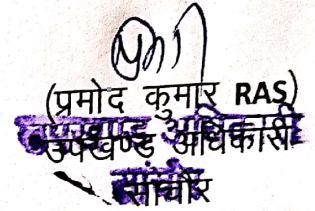 (प्रमोद कुमार RAS)
उपखण्ड अधिकारी
सांचौर